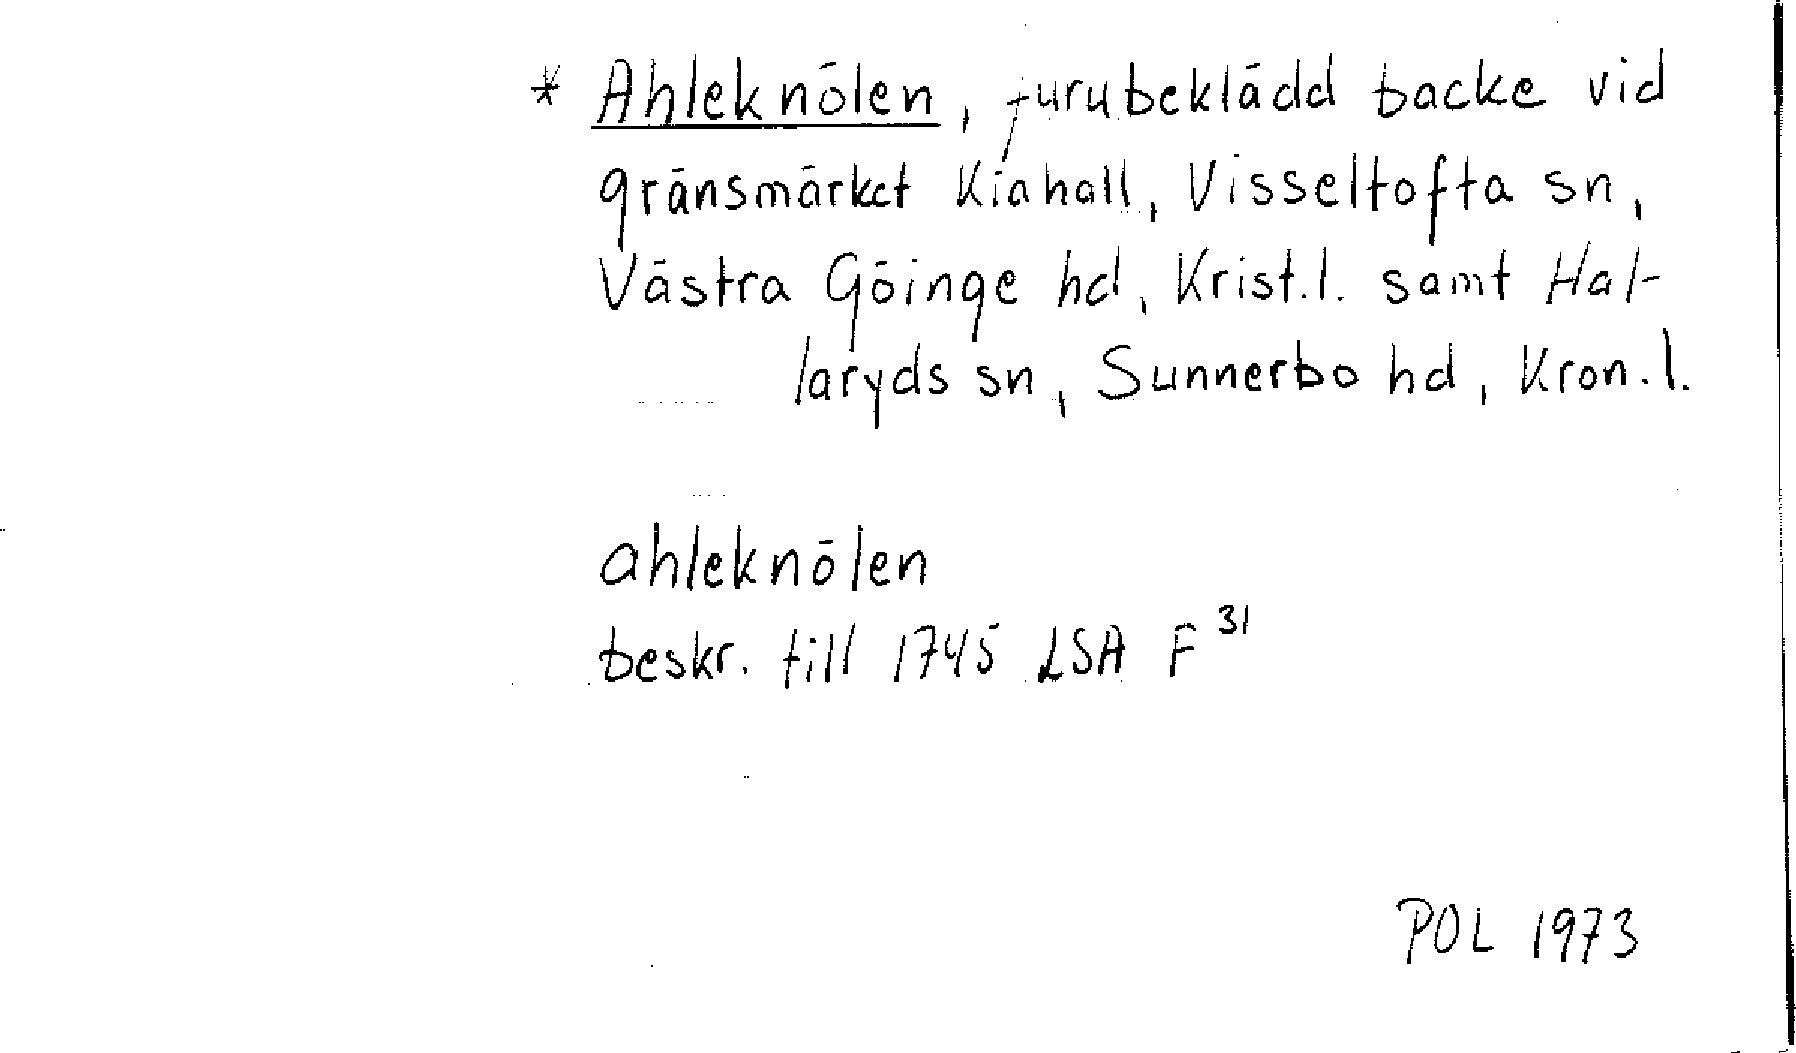 * Ahleknölen, furubeklädd backe vid
gränsmärket Kiahall, Visseltofta sn,
Västra Göinge hd, Krist.l. samt Hal-
laryds sn, Sunnerbo hd, Kron.l.
ahleknölen
beskr. till 1745 LSA F 31
POL 1973